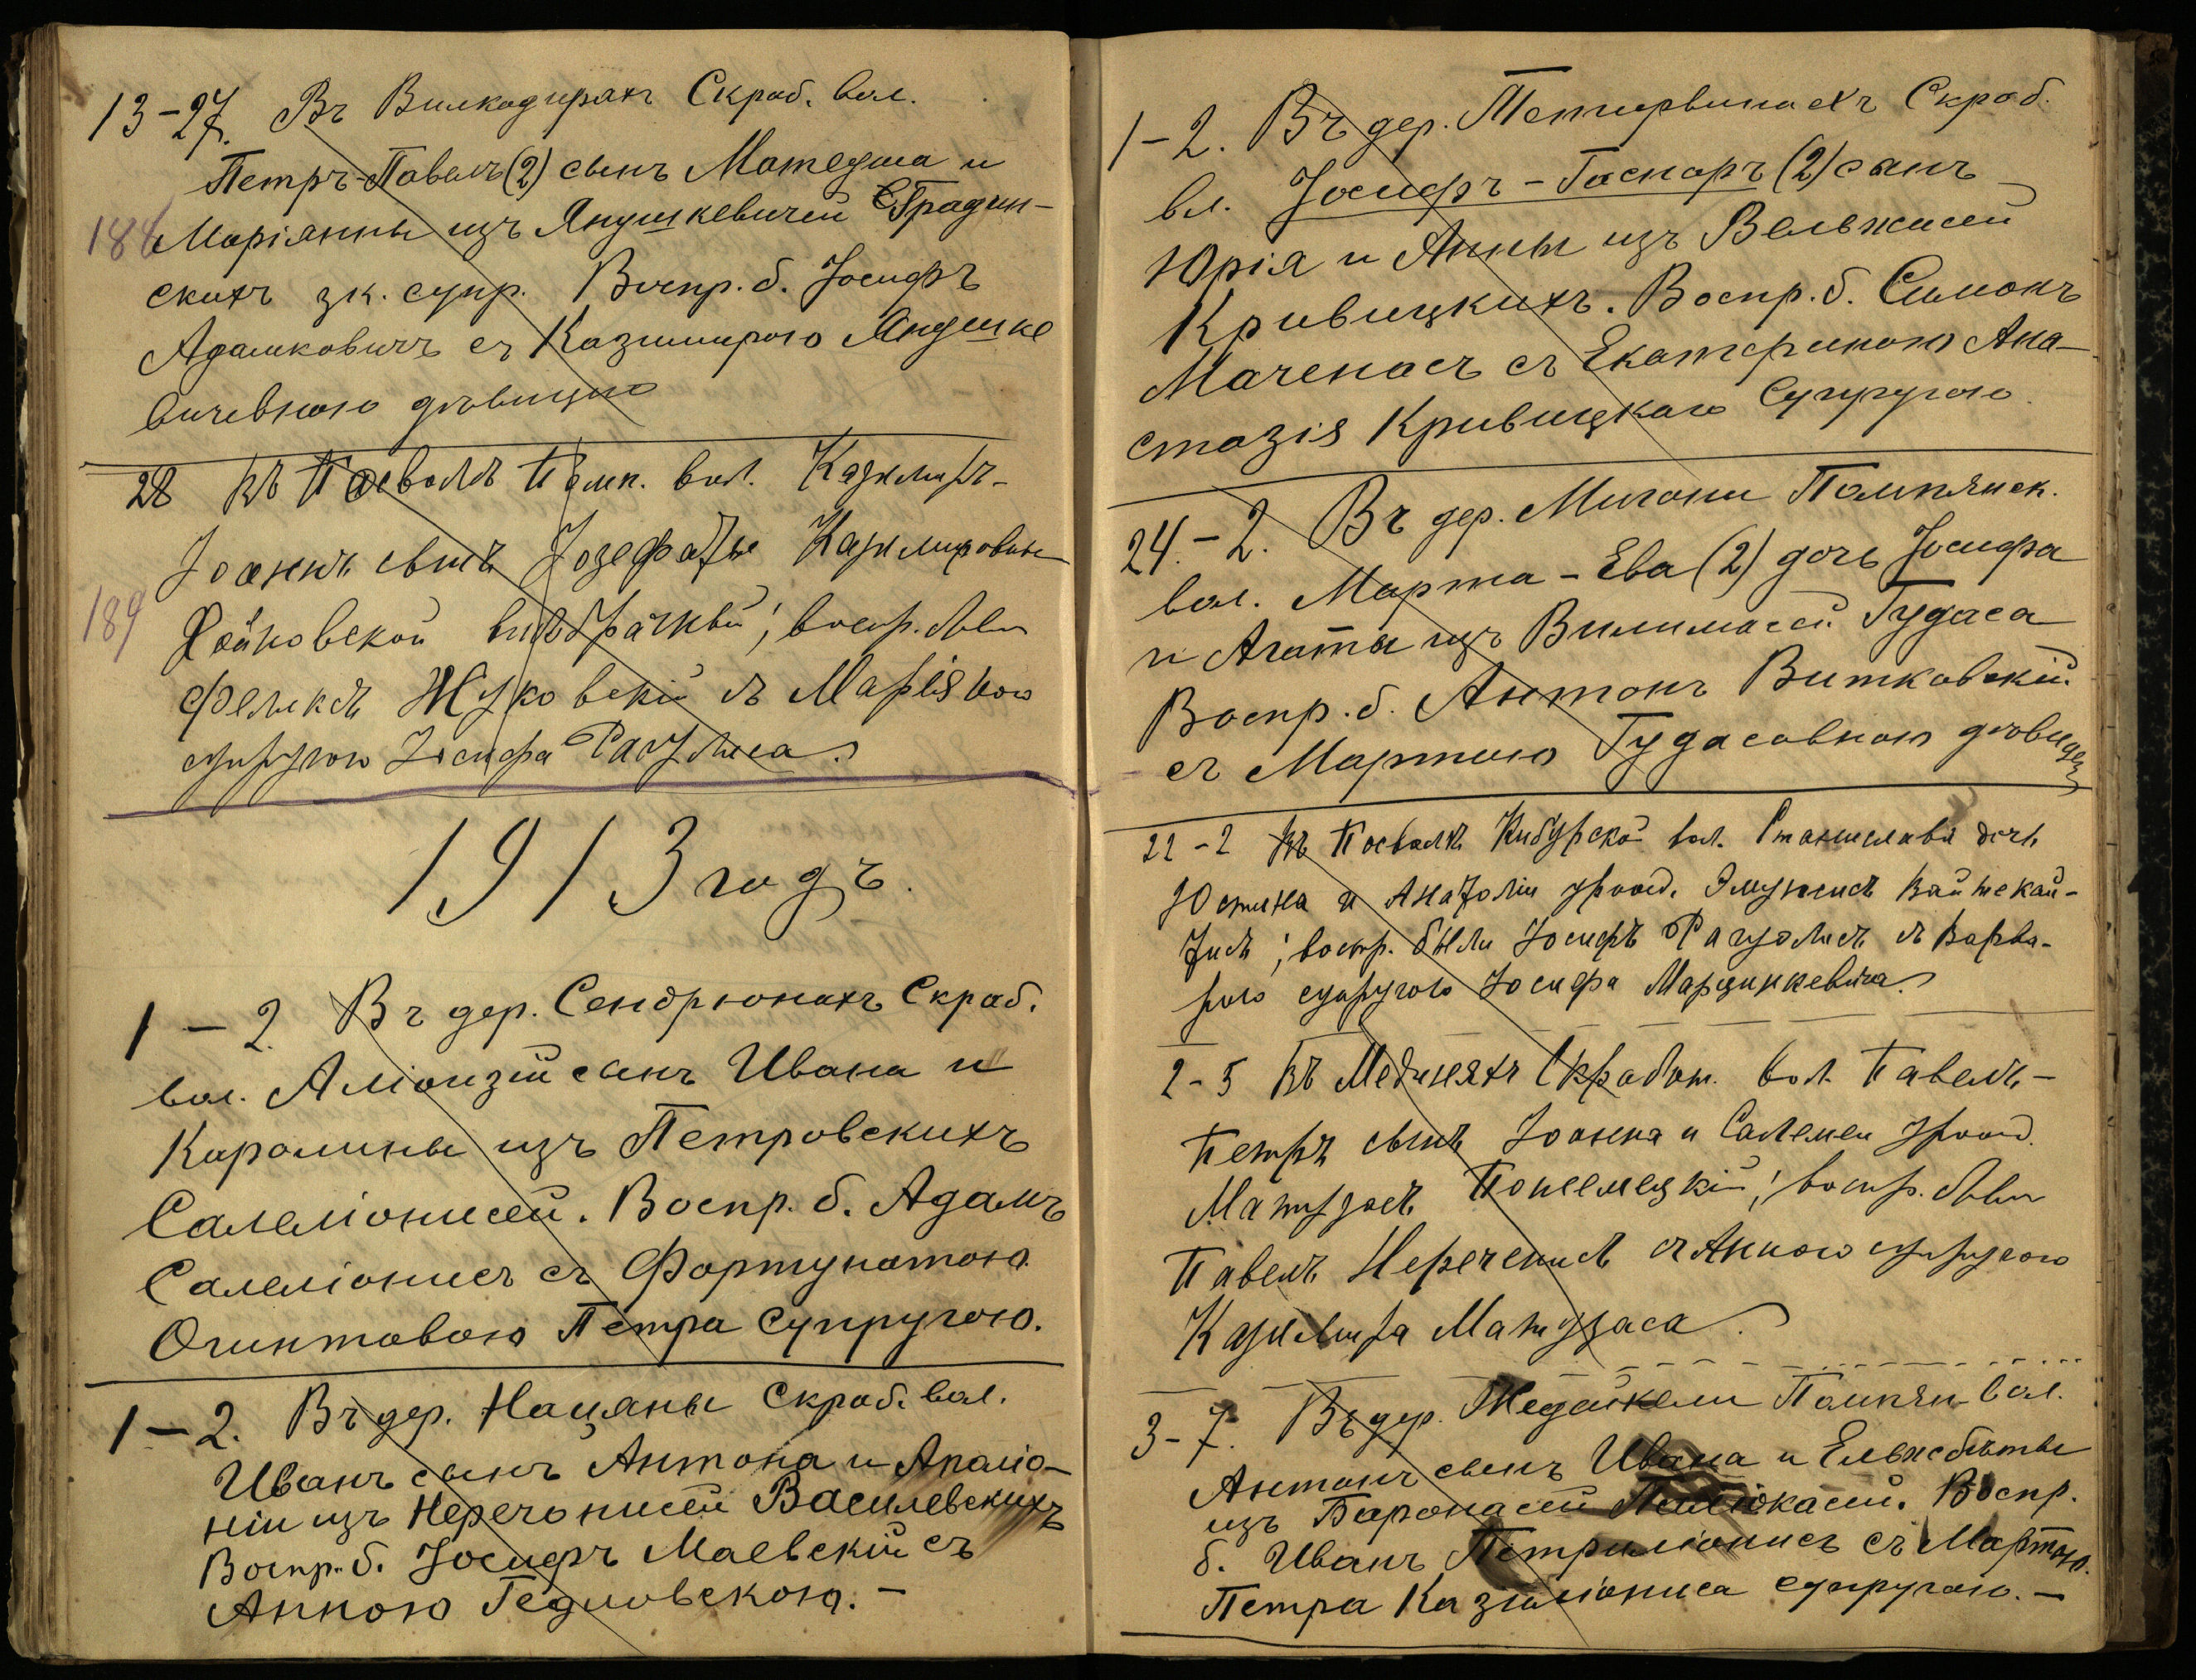 13-27. Въ Вилкадирахъ Скраб. вол.
Петръ-Павелъ (2) сынъ Матеуша и
188 Маріянны изъ Янушкевичей Градин-
скихъ зк. супр. Воспр. б. Іосифъ
Адамковичъ съ Казимирою Янушке
вичевною дѣвицею
28 Въ Посволѣ Помп. вол. Казимиръ-
Іоаннъ сынъ Іозефаты Казимировны
189 Войновской внѣбрачный; воспр. были
Феликсъ Жуковскій съ Маріяною
супругою Іосифа Рагулиса
1913 годъ.
1-2. Въ дер. Сендрюнахъ Скраб.
вол. Алюизій сынъ Ивана и
Каролины изъ Петровскихъ
Салемонисей. Воспр. б. Адамъ
Салемонисъ съ Фортунатою
Огинтовою Петра супругою.
1-2. Въ дер. Нацяны Скраб. вол.
Иванъ сынъ Антона и Аполо-
ніи изъ Неречонисей Василевскихъ
Воспр. б. Іосифъ Маевскій съ
Анною Гедловскою. -
1-2. Въ дер. Петирвинахъ Скраб.
вл. Іосифъ-Гаспаръ (2) сынъ
Юрія и Анны изъ Вельжисей
Кривицкихъ. Воспр. б. Симонъ
Маченасъ съ Екатериною Ана-
стазія Кривицкаго супругою.
24.-2. Въ дер. Мигони Помпянск.
вол. Марта-Ева (2) дочь Іосифа
и Агаты изъ Вилимасей Гудаса
Воспр. б. Антонъ Витковскій
съ Мартою Гудасовною дѣвицею
22-2 Въ Посволѣ Кибурской вол. Станислава дочь
Юстина и Анатоліи урожд. Эмужисъ Вайтекай-
тисъ; воспр. были Іосифъ Рагуолисъ съ Варва-
рою супругою Іосифа Марцинкевича
2-5 Въ Мединяхъ Скработ. вол. Павелъ-
Петръ сынъ Іоанна и Саломеи урожд.
Матузасъ Понемецкій; воспр. были
Павелъ Неречонисъ съ Анною супругою
Казимира Матузаса.
3-7. Въ дер. Жедейкели Помпян. вол.
Антонъ сынъ Ивана и Ельжбѣты
изъ Баронасей Палюкасей. Воспр.
б. Иванъ Петрилонисъ съ Мартою
Петра Казилониса супругою. -